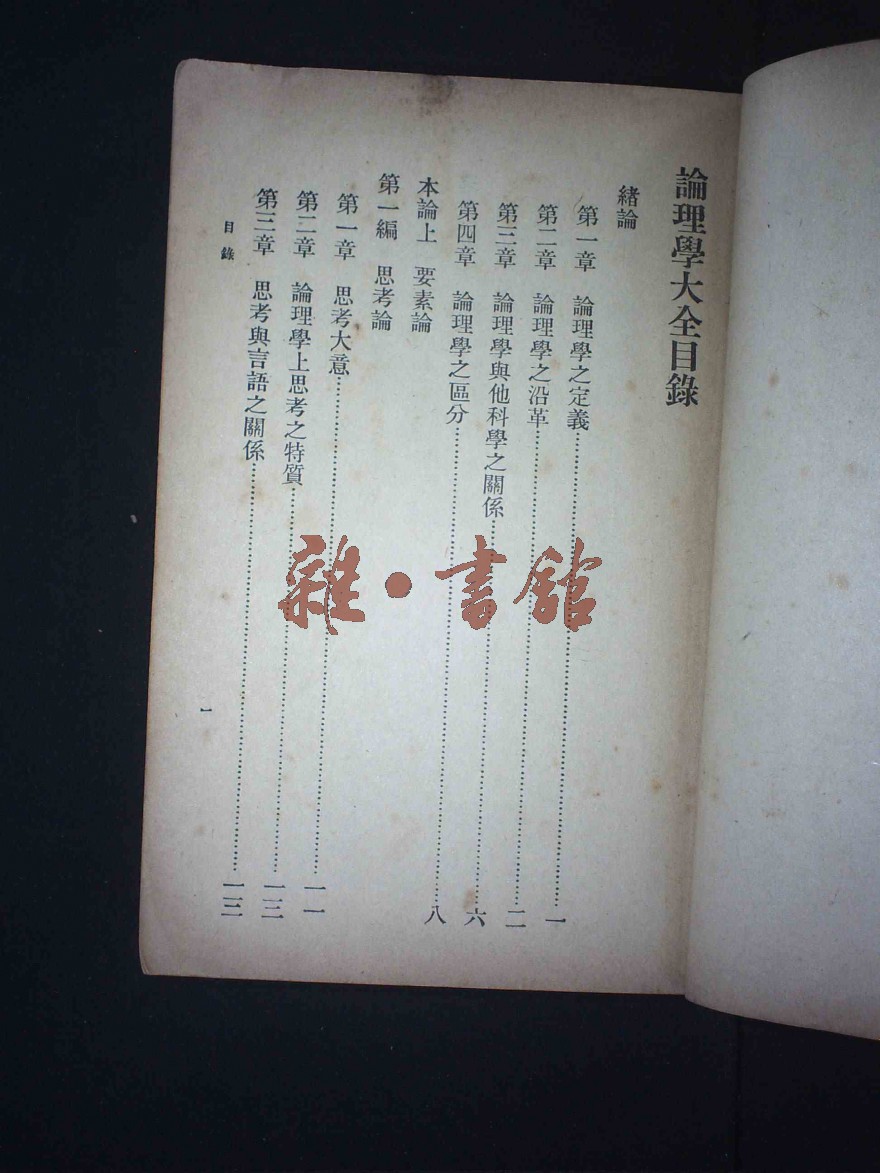 論理學大全目錄
緒論
第一章 論理學之定義……一
第二章 論理學之沿革……二
第三章 論理學與他科學之關係……六
第四章 論理學之區分……八
本論上 要素論
第一編 思考論
第一章 思考大意……一一
第二章 論理學上思考之特質……一二
第三章 思考與言語之關係……一三
目錄
一
雜·書館